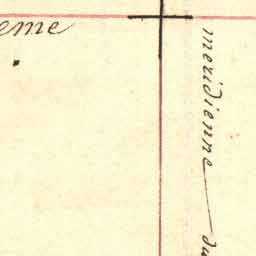 eme
meridienne du